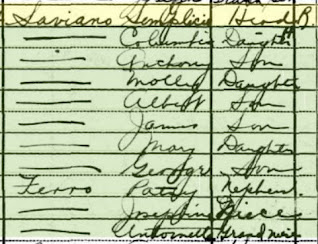 Saviano Simplicio Head R
— Columbia Daughter
— Anthony Son
— Molley Daughter
— Albert Son
— James Son
— Mary Daughter
— George Son
Ferro Patsy Nephew
— Josephine Niece
— Antoinette Grand niece